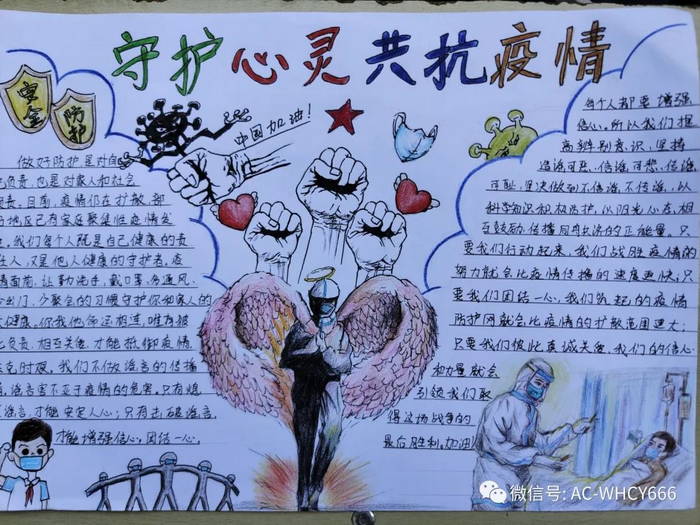 守护心灵 共抗疫情
安全
防护
中国加油！
做好防护是对自
己负责，也是对家人和社会
负责。目前，疫情仍在扩散，部
分地区已有家庭聚集性疫情发
生，我们每个人既是自己健康的责
任人，又是他人健康的守护者，疫
情面前，让勤洗手，戴口罩，多通风，
少出门，少聚会的习惯守护你和家人的
健康。你我他命运相连，唯有彼
此负责，相互关爱，才能抵御疫情
危时艰，我们不做谣言的传播
谣言害不亚于疫情的危害，只有熄
谣言，才能安定人心；只有击破谣言，
才能增强信心，团结一心。
每个人都要增强
信心，所以我们提
高辨别意识，坚持
造谣可恶，信谣可悲，传谣
可耻，坚决做到不信谣，不传谣，以
科学知识积极防护，以阳光心态相
互鼓励，传播同舟共济的正能量，只
要我们行动起来，我们战胜疫情的
努力就会比疫情传播的速度更快；只
要我们团结一心，我们筑起的疫情
防护网就会比疫情的扩散范围更大；
只要我们彼此真诚关爱，我们的信心
和力量就会
引领我们取
得这场战争的
最后胜利。加油！
微信号: AC-WHCY666